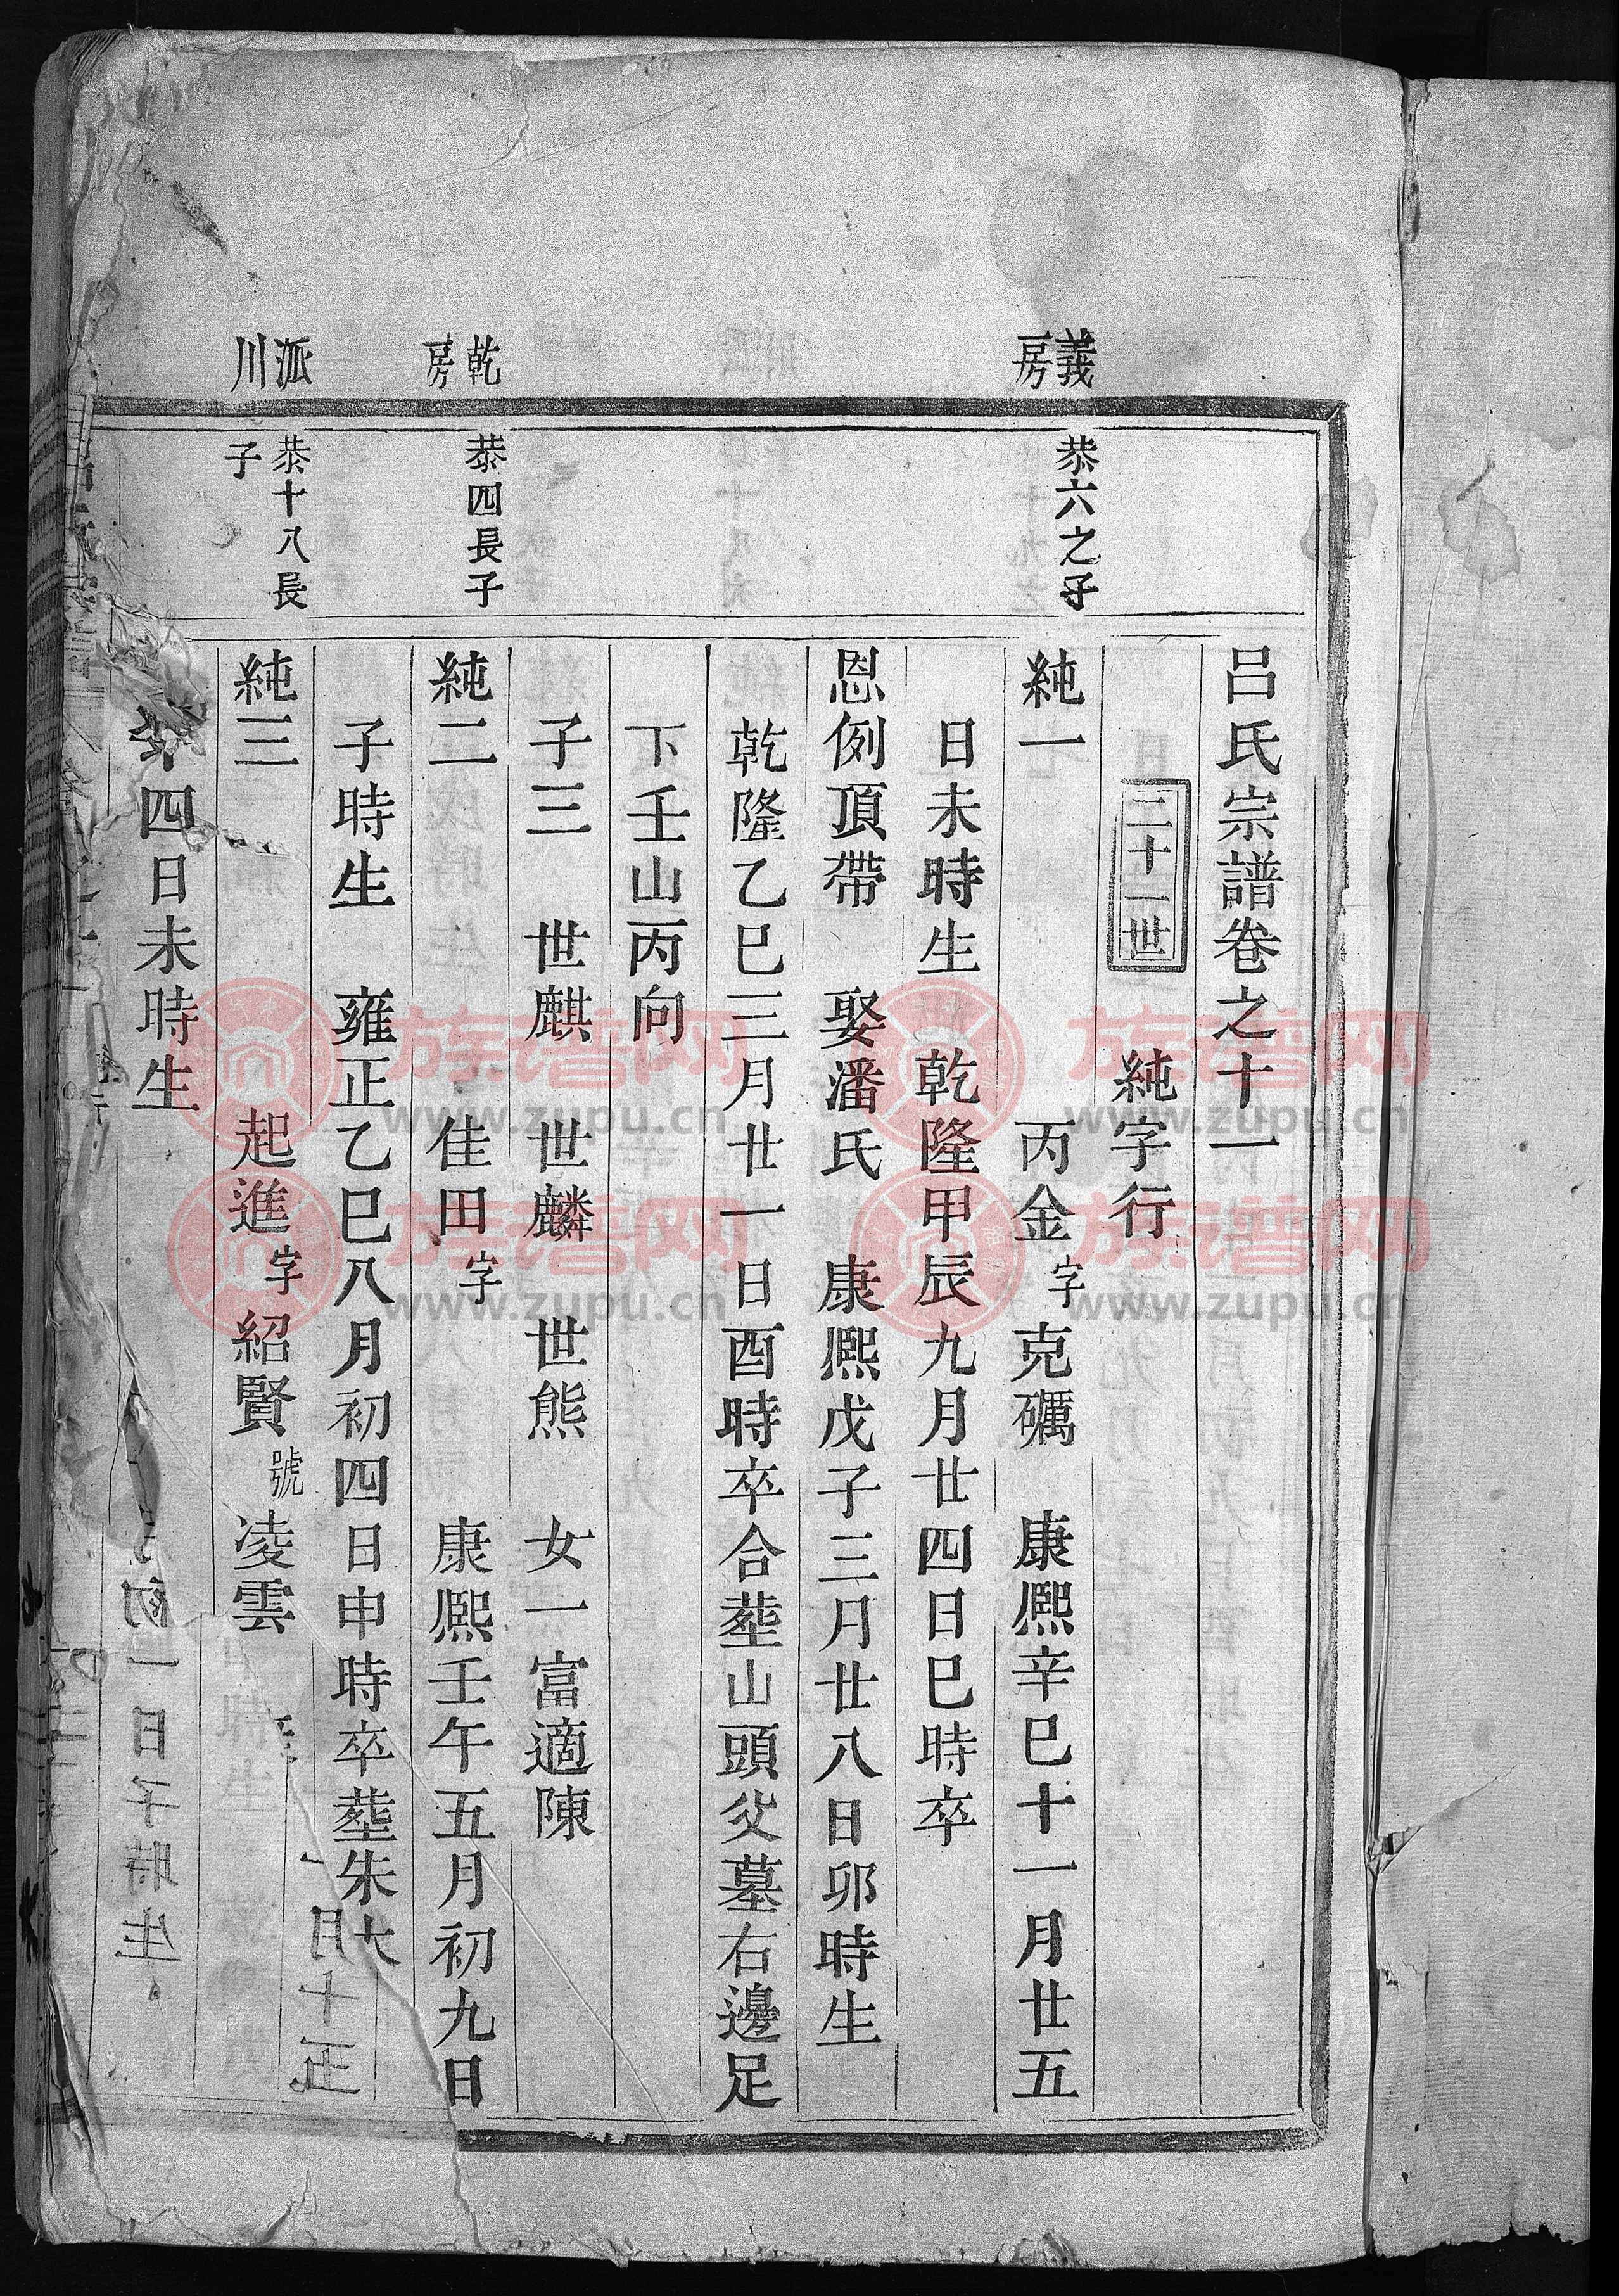 呂氏宗譜卷之十一
二十一世
純字行
義房
恭六之子
純一
丙金字克礪
康熙辛巳十一月廿五
日未時生
乾隆甲辰九月廿四日巳時卒
恩例頂帶
娶潘氏
康熙戊子三月廿八日卯時生
乾隆乙巳三月廿一日酉時卒合塟山頭父墓右邊足
下壬山丙向
子三
世麒
世麟
世熊
女一富適陳
乾房
恭四長子
純二
佳田字
康熙壬午五月初九日
子時生
雍正乙巳八月初四日申時卒塟朱大
派川
恭十八長子
純三
起進字紹賢號凌雲
四日未時生
族谱网
www.zupu.cn
族谱网
www.zupu.cn
族谱网
www.zupu.cn
族谱网
www.zupu.cn